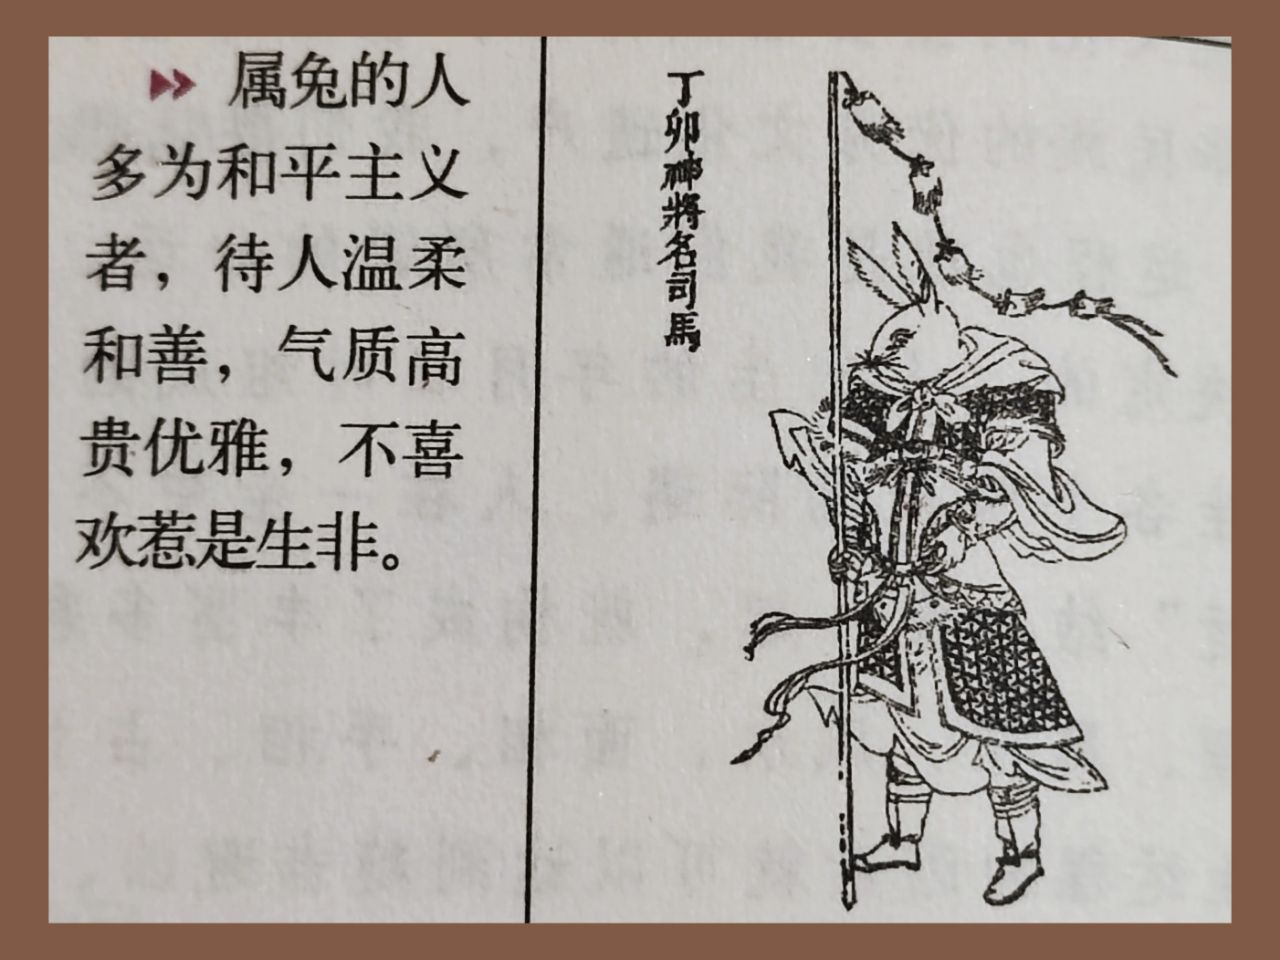 属兔的人
多为和平主义
者，待人温柔
和善，气质高
贵优雅，不喜
欢惹是生非。
丁卯神將名司馬